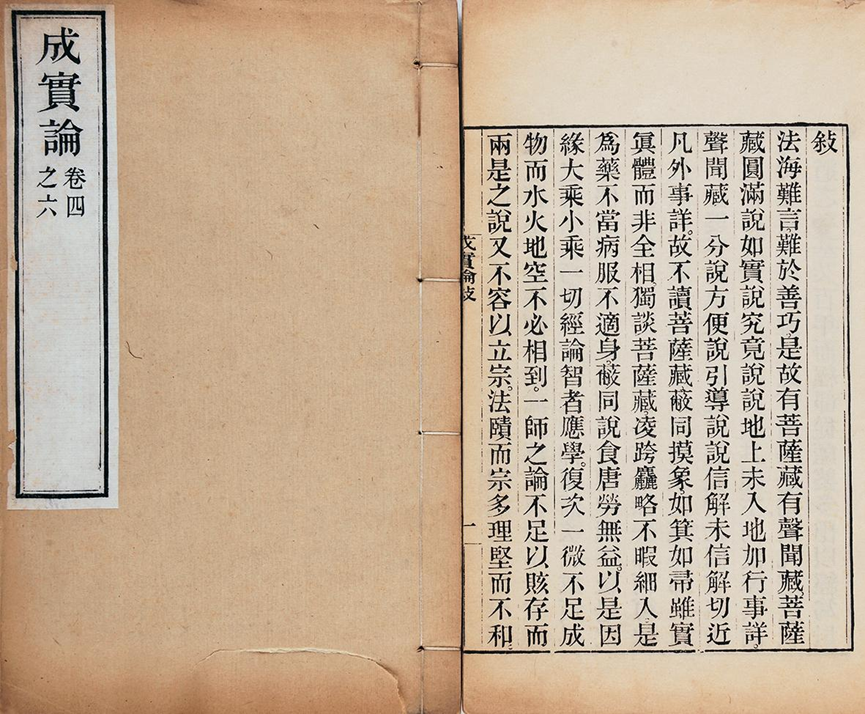 成實論
卷四
之六
敍
法海難言難於善巧是故有菩薩藏有聲聞藏菩薩
藏圓滿說如實說究竟說說地上未入地加行事詳
聲聞藏一分說方便說引導說說信解未信解切近
凡外事詳。故不讀菩薩藏蔽同摸象如箕如帚雖實
冥體而非全相獨談菩薩藏凌跨麤略不暇細入是
爲藥不當病服不適身蔽同說食唐勞無益以是因
緣大乘小乘一切經論智者應學。復次一微不足成
物而水火地空不必相到。一師之論不足以賅存而
兩是之說又不容以立宗。法賾而宗多理堅而不和
成實論敍
一